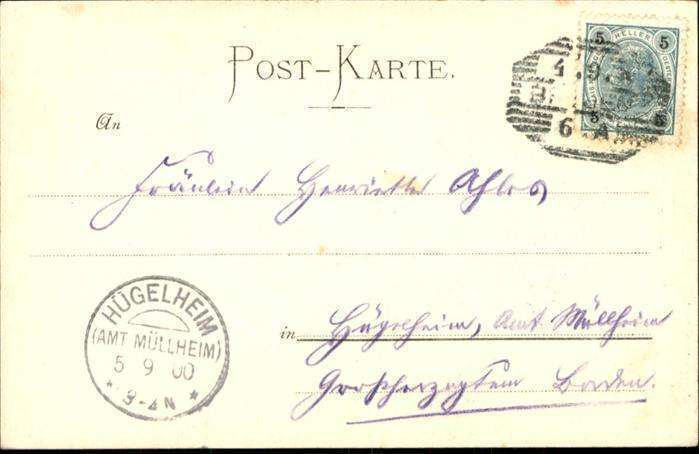 POST-KARTE.
5 HELLER 5
5 5
4.9.
6
An
Fräulein Henriette Ahlos
HÜGELHEIM
(AMT MÜLLHEIM)
5 9 00
* 3-4N *
in Hügelheim, Amt Müllheim
Großherzogtum Baden.